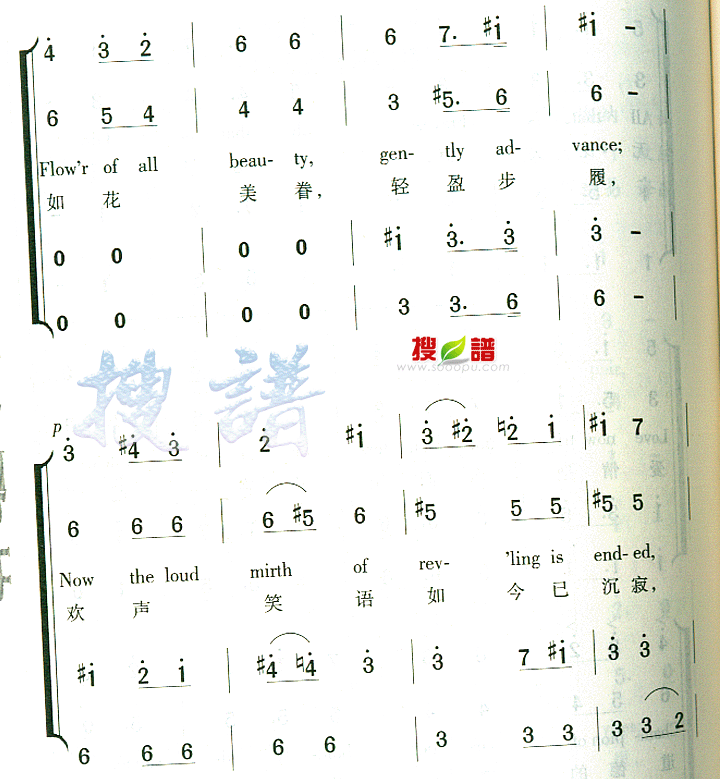 4 3 2 | 6 6 | 6 7. #1 | #1 –
6 5 4 | 4 4 | 3 #5. 6 | 6 –
Flow'r of all beau- ty, gen- tly ad- vance;
如 花 美 眷, 轻 盈 步 履,
0 0 | 0 0 | #1 3. 3 | 3 –
0 0 | 0 0 | 3 3. 6 | 6 –
搜谱
www.sooopu.com
搜譜
p
3 #4 3 | 2 #1 | 3 #2 ♮2 1 | #1 7
6 6 6 | 6 #5 6 | #5 5 5 | #5 5
Now the loud mirth of rev- 'ling is end- ed,
欢 声 笑 语 如 今 已 沉 寂,
#1 2 1 | #4 ♮4 3 | 3 7 #1 | 3 3
6 6 6 | 6 6 | 3 3 3 | 3 3 2